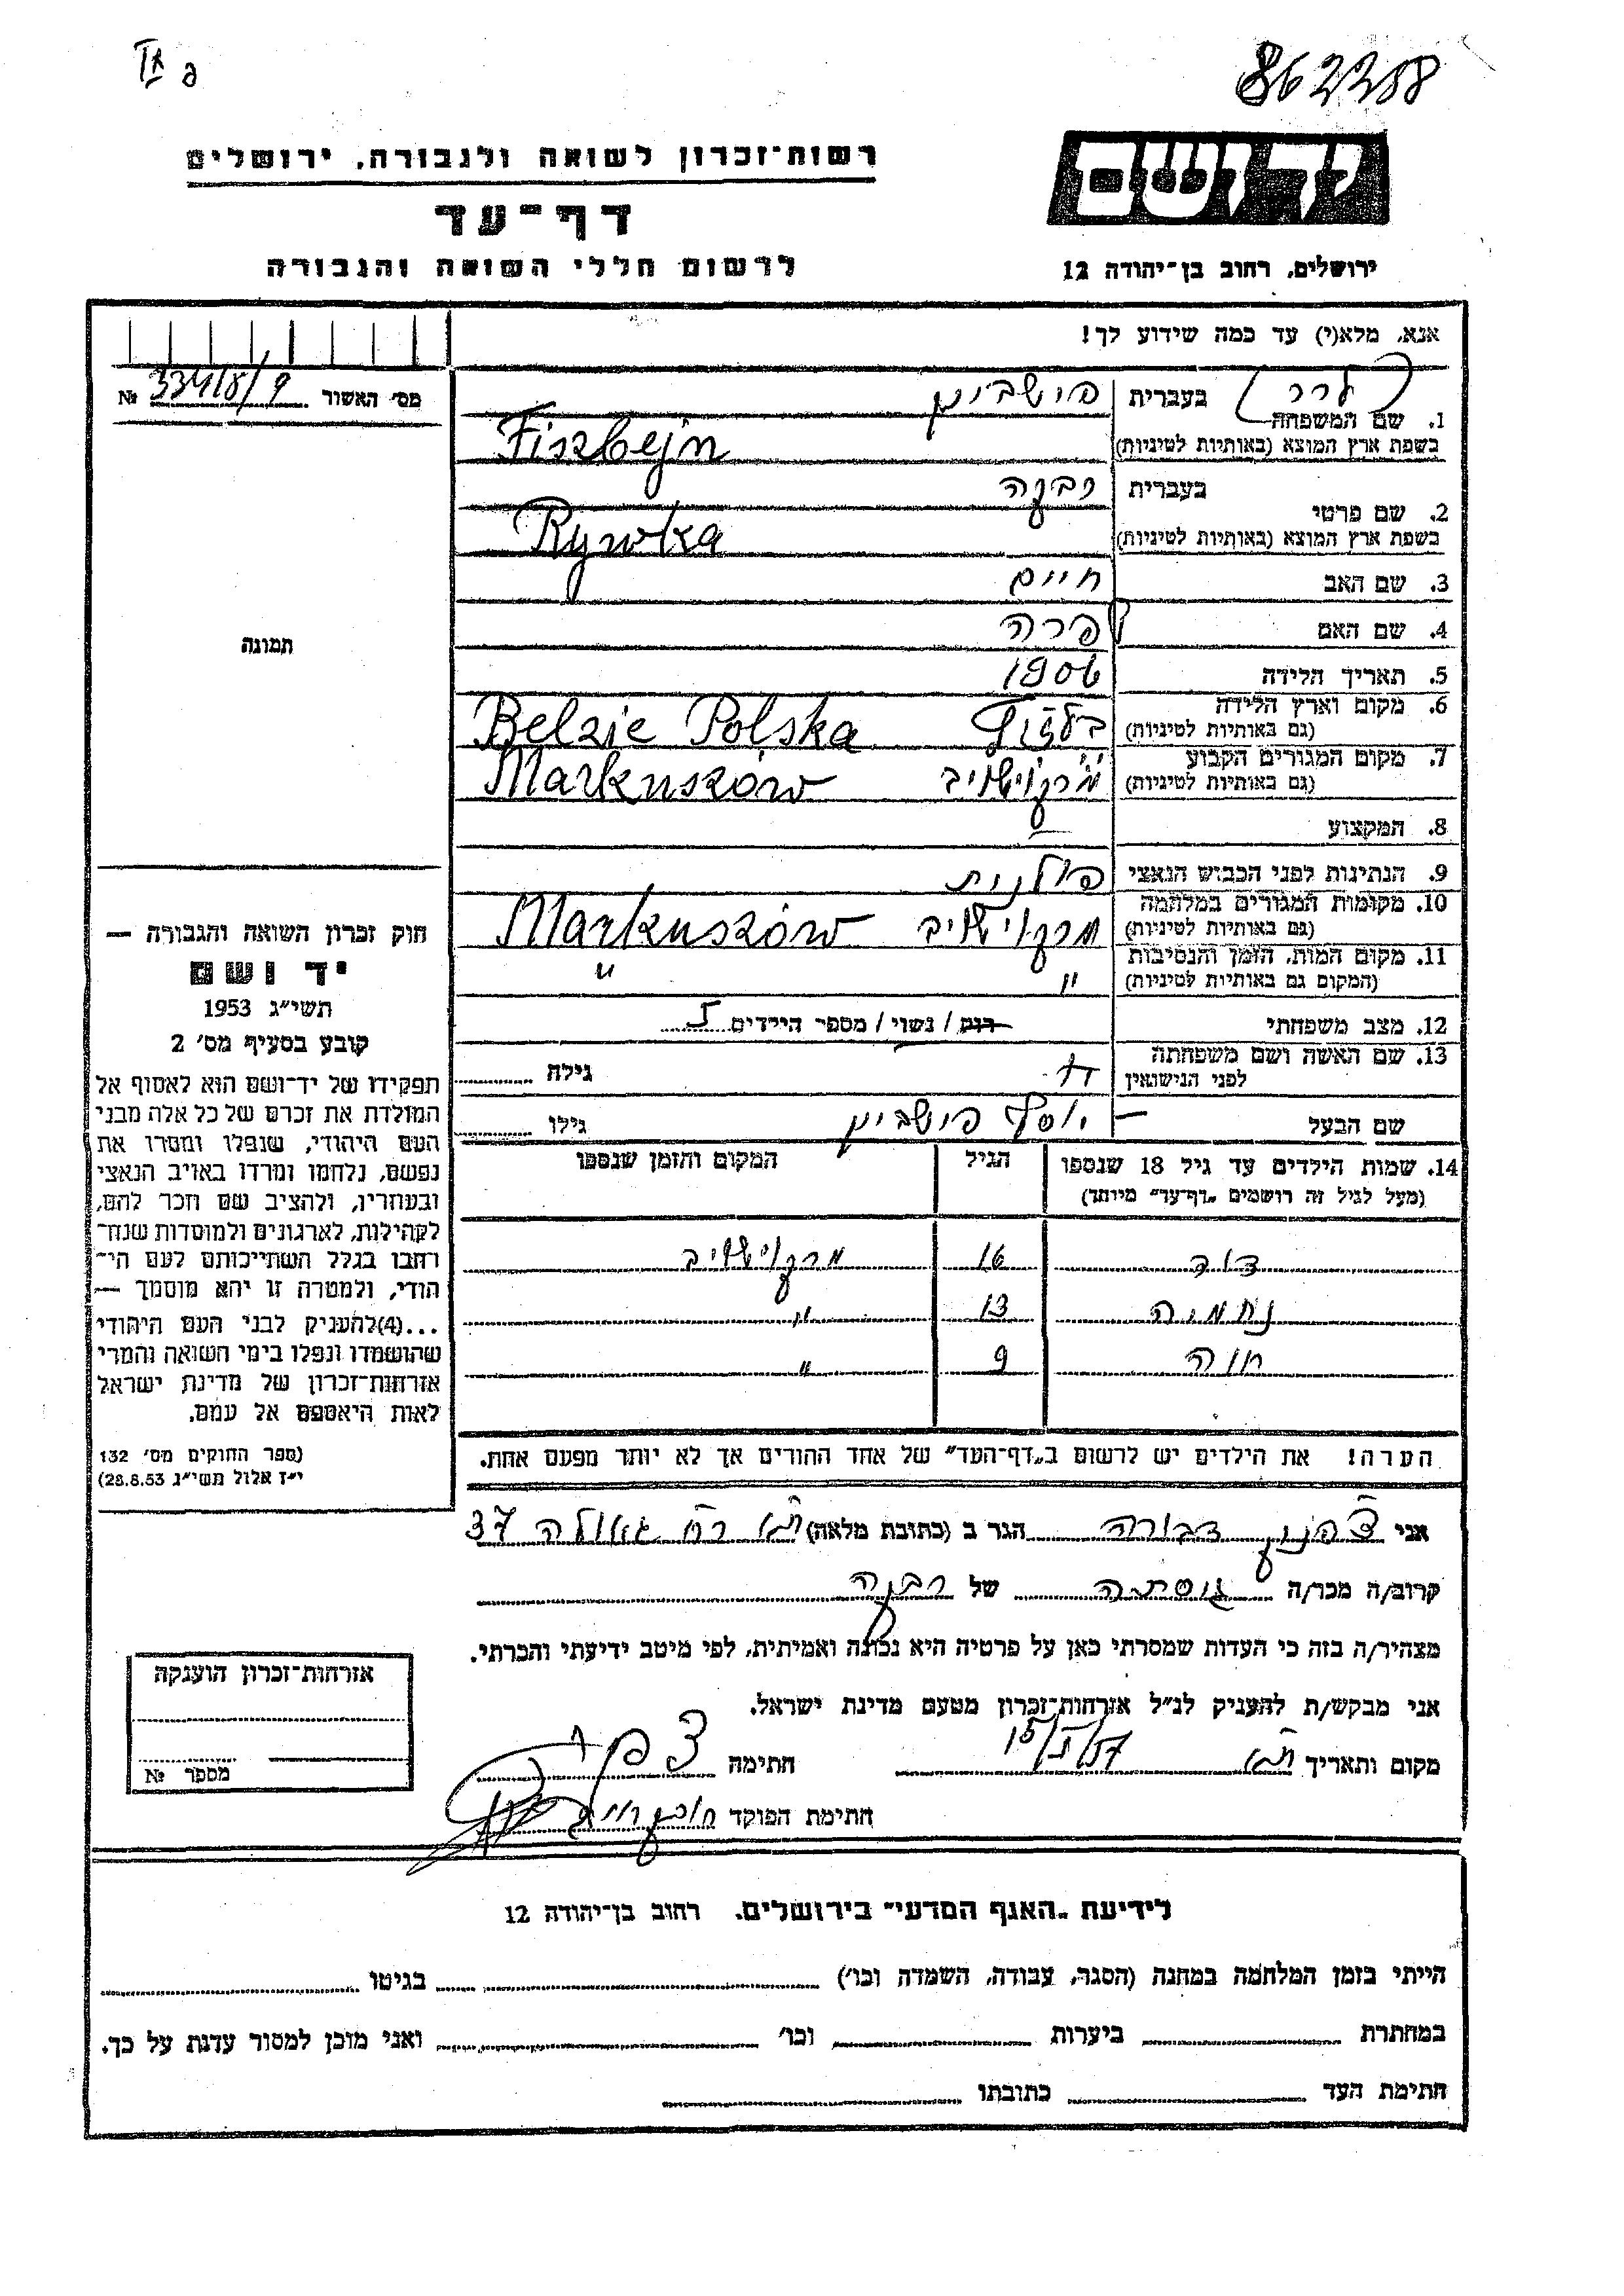 862288
רשות־זכרון לשואה ולגבורה, ירושלים
דף־עד
לרשום חללי השואה והגבורה
יד ושם
ירושלים, רחוב בן־יהודה 12
אנא, מלא(י) עד כמה שידוע לך!
מס׳ האשור 334/8/9 №
1. שם המשפחה (לרר) בעברית פישביין
בשפת ארץ המוצא (באותיות לטיניות) Fiszbejn
2. שם פרטי בעברית רבקה
בשפת ארץ המוצא (באותיות לטיניות) Rywka
3. שם האב חיים
4. שם האם פרה
5. תאריך הלידה 1906
6. מקום וארץ הלידה
(גם באותיות לטיניות) Belzie Polska
7. מקום המגורים הקבוע
(גם באותיות לטיניות) מרקושויב Markuszów
8. המקצוע —
9. הנתינות לפני הכבוש הנאצי פולנית
10. מקומות המגורים במלחמה
(גם באותיות לטיניות) מרקושויב Markuszów
11. מקום המות, הזמן והנסיבות
(המקום גם באותיות לטיניות) " "
12. מצב משפחתי רוק / נשוי / מספר הילדים 5
13. שם האשה ושם משפחתה
לפני הנישואין גילה
שם הבעל — יוסף פישביין גילו
14. שמות הילדים עד גיל 18 שנספו הגיל המקום והזמן שנספו
(מעל לגיל זה רושמים „דף־עד״ מיוחד)
דוד 16 מרקושויב
נחמיה 13 "
חוה 9 "
הערה! את הילדים יש לרשום ב„דף־העד״ של אחד ההורים אך לא יותר מפעם אחת.
תמונה
חוק זכרון השואה והגבורה —
יד ושם
תשי״ג 1953
קובע בסעיף מס׳ 2
תפקידו של יד־ושם הוא לאסוף אל
המולדת את זכרם של כל אלה מבני
העם היהודי, שנפלו ומסרו את
נפשם, נלחמו ומרדו באויב הנאצי
ובעוזריו, ולהציב שם וזכר להם,
לקהילות, לארגונים ולמוסדות שנח־
רחבו בגלל השתייכותם לעם הי־
הודי, ולמטרה זו יהא מוסמך —
...(4)להעניק לבני העם היהודי
שהושמדו ונפלו בימי השואה והמרי
אזרחות־זכרון של מדינת ישראל
לאות היאספם אל עמם.
(ספר החוקים מס׳ 132
י״ז אלול תשי״ג 28.8.53)
אני צפנוק דבורה הגר ב (כתובת מלאה) ת״א רח׳ גאולה 37
קרוב/ה מכר/ה גיסתה של רבקה
מצהיר/ה בזה כי העדות שמסרתי כאן על פרטיה היא נכונה ואמיתית, לפי מיטב ידיעתי והכרתי.
אני מבקש/ת להעניק לנ״ל אזרחות־זכרון מטעם מדינת ישראל.
מקום ותאריך ת״א 15/5/57 חתימה
חתימת הפוקד
אזרחות־זכרון הוענקה
מספר №
לידיעת „האגף המדעי״ בירושלים, רחוב בן־יהודה 12
הייתי בזמן המלחמה במחנה (הסגר, עבודה, השמדה וכו׳) בגיטו
במחתרת ביערות וכו׳ ואני מוכן למסור עדות על כך.
חתימת העד כתובתו